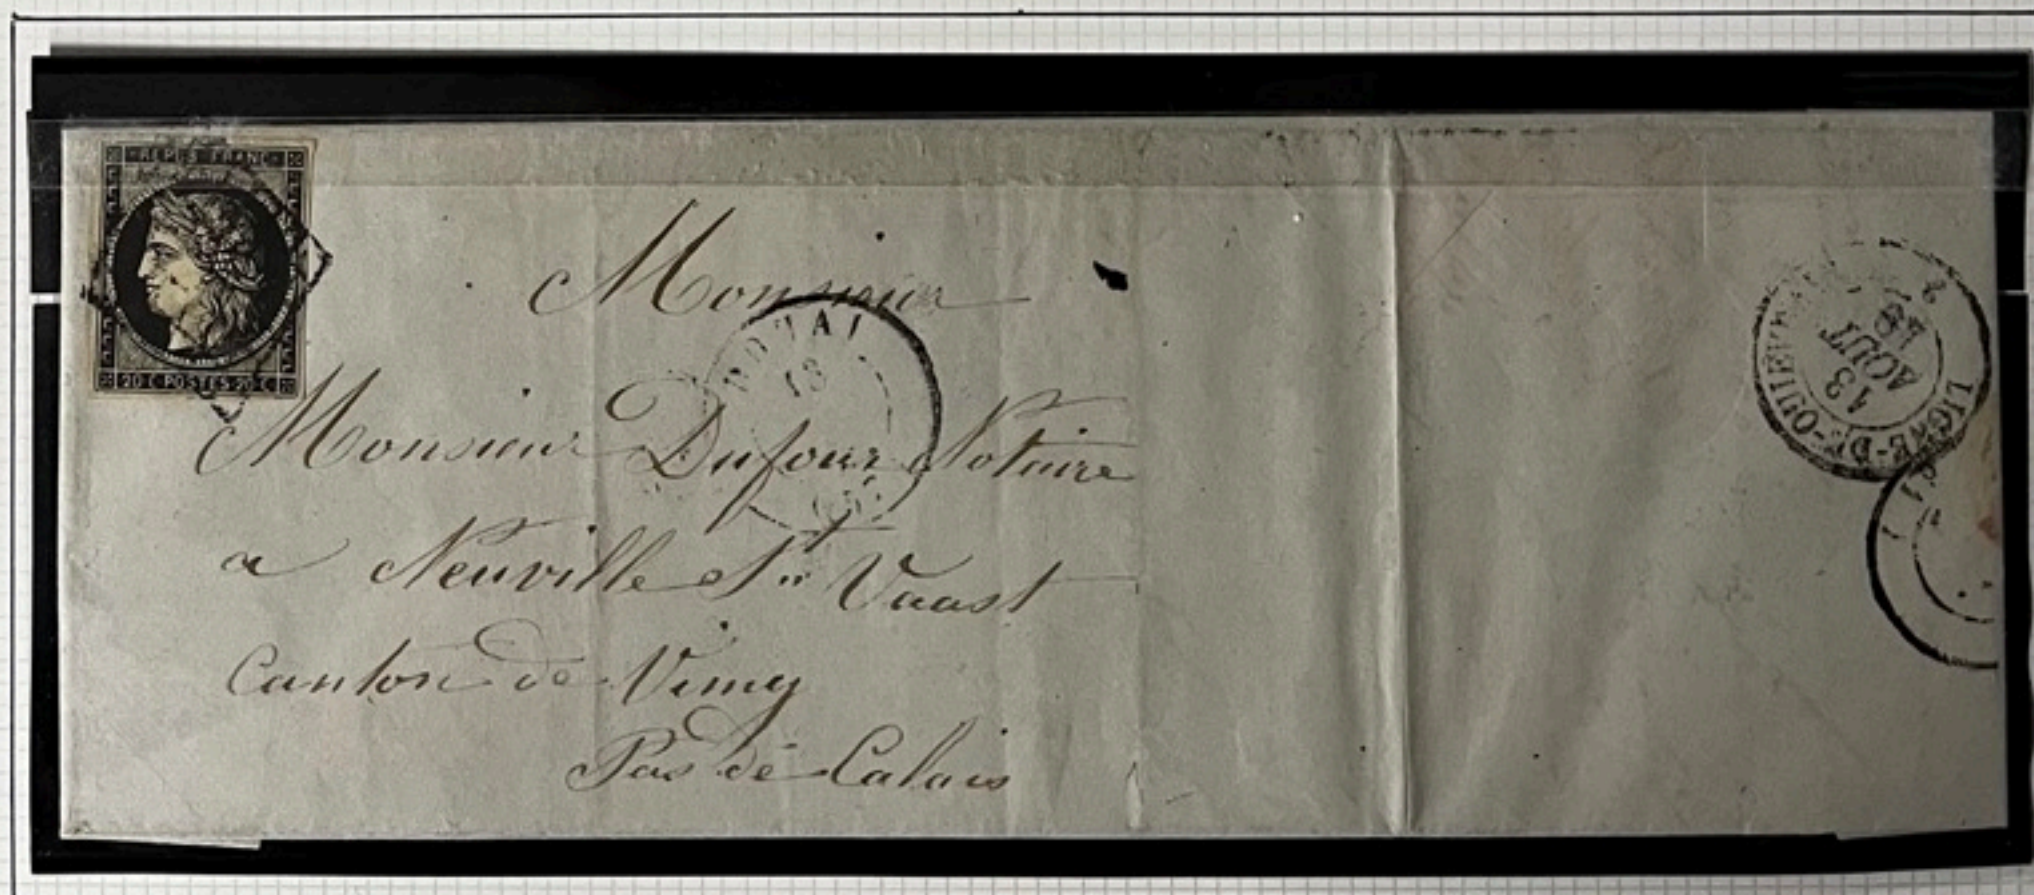 REPUB FRANC
20 C POSTES 20 C
Monsieur
DOUAI
13
Monsieur Dufour Notaire
a Neuville St Vaast
Canton de Vimy
Pas de Calais
LIGNE-DE-QUIÉVRAIN
2
13
AOUT
49